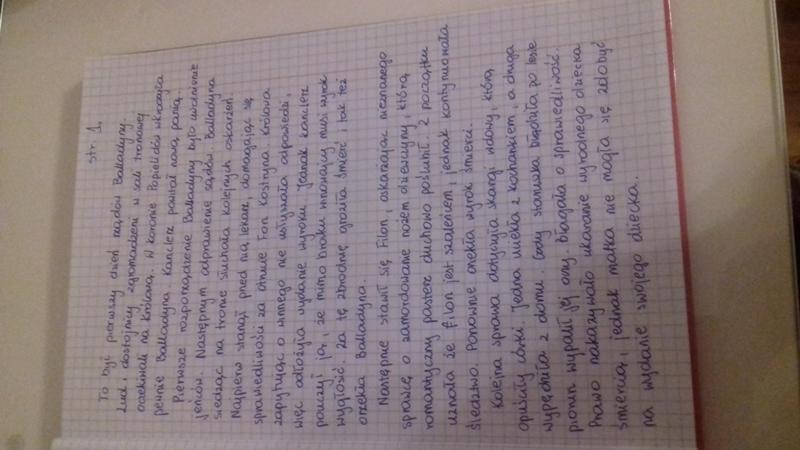 str. 1.
To był pierwszy dzień rządów Balladyny.
Lud i dostojnicy zgromadzeni w sali tronowej
oczekiwali na Królową. W koronie Popielidów wkroczyła
pewnie Balladyna. Kanclerz powitał nową panią.
Pierwsze rozporządzenie Balladyny było uwolnienie
jeńców. Następnym odprawienie sądów. Balladyna
siedząc na tronie słuchała kolejnych oskarżeń.
Najpierw stanął pred nią lekarz, domagając się
sprawiedliwości za otrucie Fon Kostryna. Królowa
zapytując o winnego nie usłyszała odpowiedzi,
więc odłożyła wydanie wyroku. Jednak kanclerz
pouczył ją, że mimo braku winowajcy musi wyrok
wygłosić. Za tę zbrodnię groziła śmierć i tak też
orzekła Balladyna.
Następnie stawił się Filon, oskarżając nieznanego
sprawcę o zamordowanie nożem dziewczyny, którą
romantyczny pasterz duchowo poślubił. Z początku
uznała że filon jest szaleńcem, jednak kontynuowała
śledztwo. Ponownie orzekła wyrok śmierci.
Kolejna sprawa dotyczyła skargi wdowy, którą
opuściły córki. Jedna uciekła z kochankiem, a druga
wypędziła z domu. Gdy staruszka błądziła po lesie
piorun wypalił jej oczy. Błagała o sprawiedliwość.
Prawo nakazywało ukaranie wyrodnego dziecka
śmiercią, jednak matka nie mogła się zdobyć
na wydanie swojego dziecka.